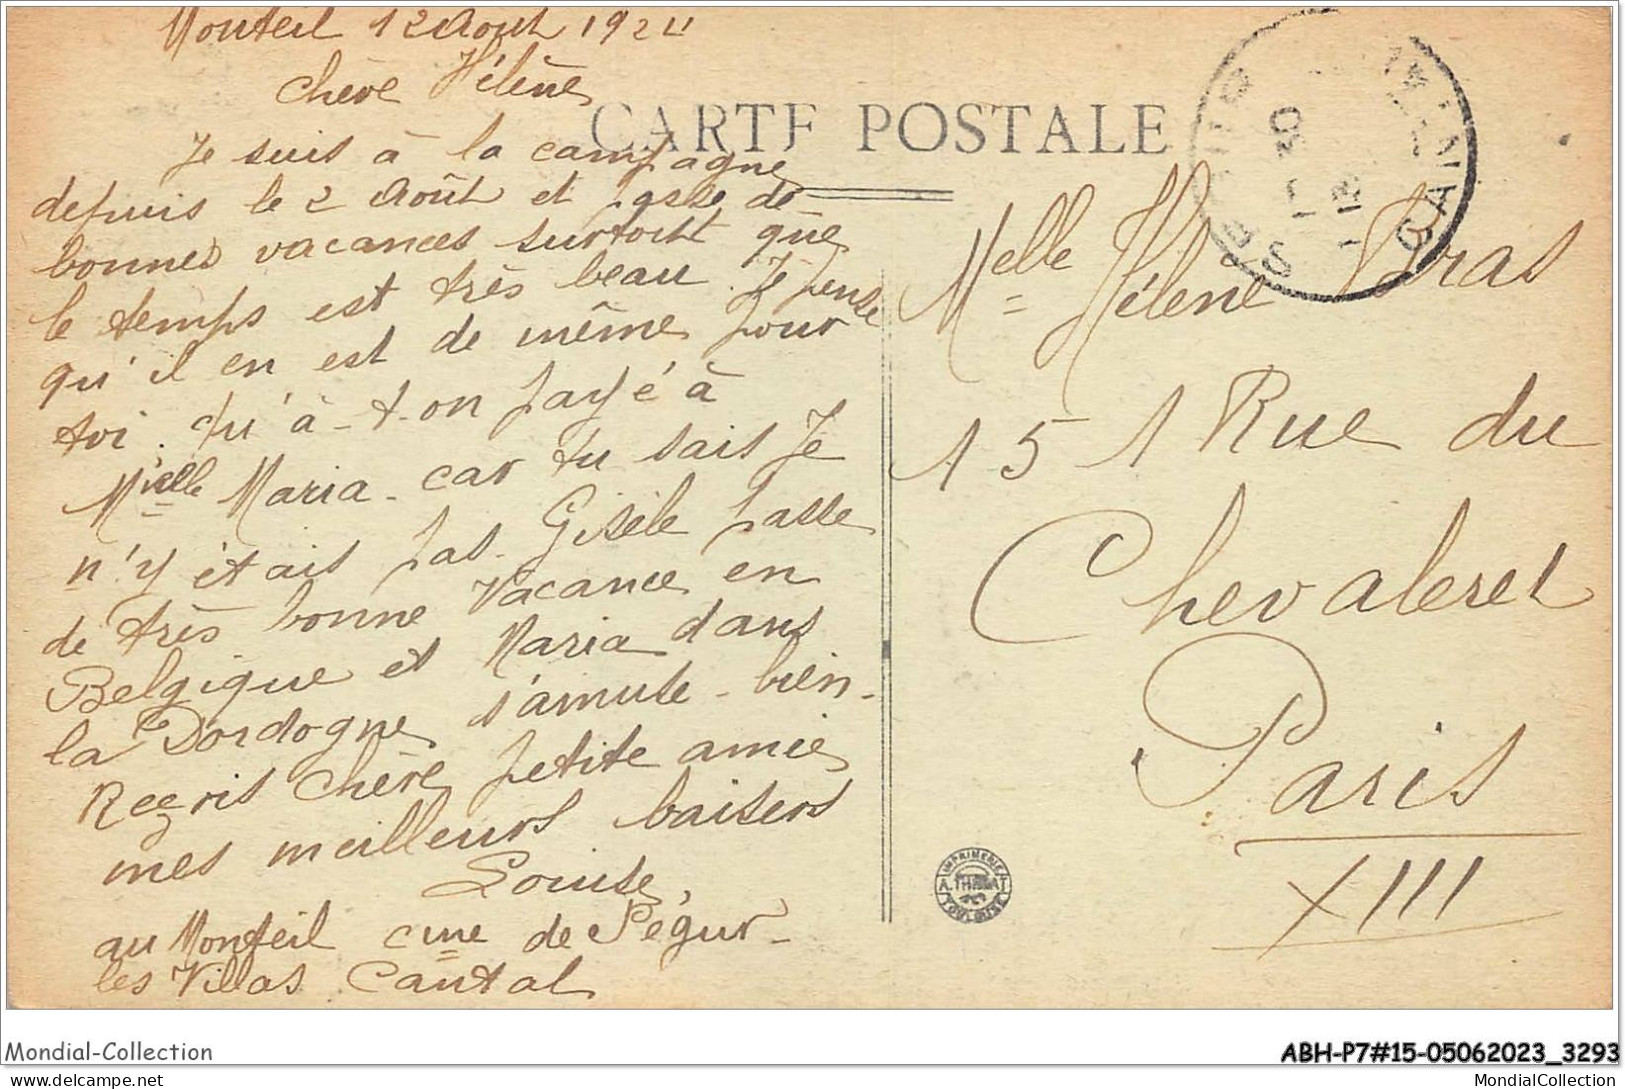 Monteil 12 Août 1924
Chère Hélène
CARTE POSTALE
Je suis à la campagne
depuis le 2 Août et passe de
bonnes vacances surtout que
le temps est très beau. Je pense
qu'il en est de même pour
toi. qu'à-t-on payé à
Melle Maria - car tu sais Je
n'y étais pas. Gisèle passe
de très bonne vacance en
Belgique et Maria dans
la Dordogne s'amuse - bien -
Reçois Chère petite amie
mes meilleurs baisers
Louise,
au Monteil cne de Ségur-
les Villas Cantal
Melle Hélène Bras
151 Rue du
Chevaleret
Paris
XIII
IMPRIMERIE
TOULOUSE
Mondial-Collection
ABH-P7#15-05062023_3293
www.delcampe.net
MondialCollection